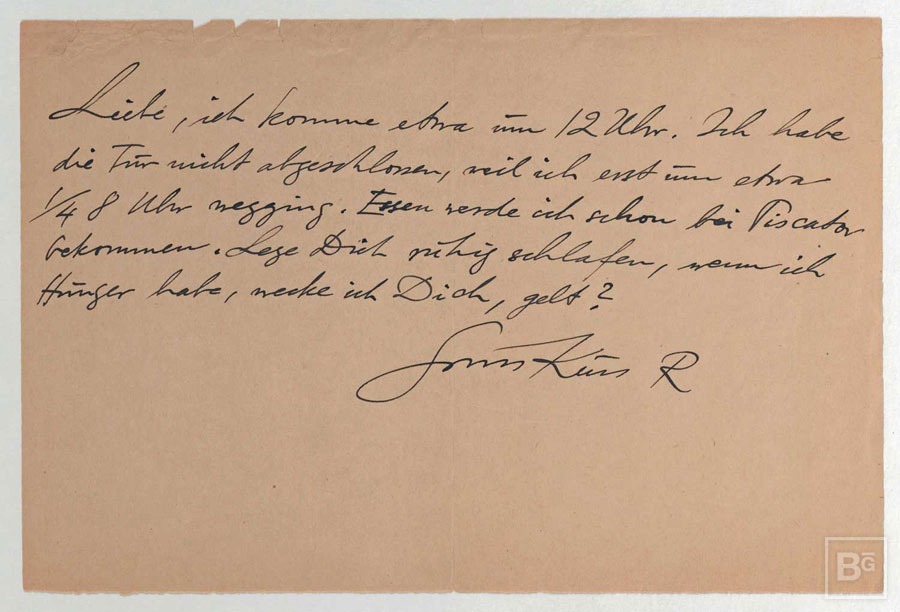 Liebe, ich komme etwa um 12 Uhr. Ich habe
die Tür nicht abgeschlossen, weil ich erst um etwa
1/4 8 Uhr wegging. Essen werde ich schon bei Piscator
bekommen. Lege Dich ruhig schlafen, wenn ich
Hunger habe, wecke ich Dich, gelt?
Gruss Kuss R
BG